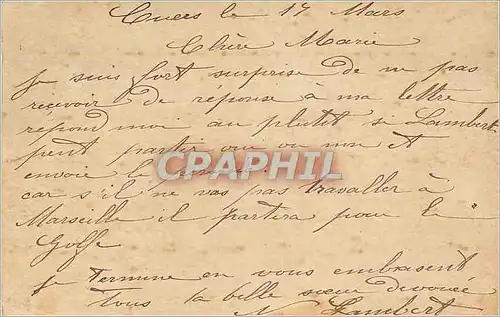 Cuers le 17 Mars
Chère Marie
Je suis fort surprise de ne pas
recevoir de réponse à ma lettre
répond moi au plutôt si Lambert
peut partir oui ou non et
envoie le
CPARPHIL
car s'il ne vas pas travailler à
Marseille il partira pour le
Golfe
je termine en vous embrasent
tous ta belle sœur dévouée
N Lambert